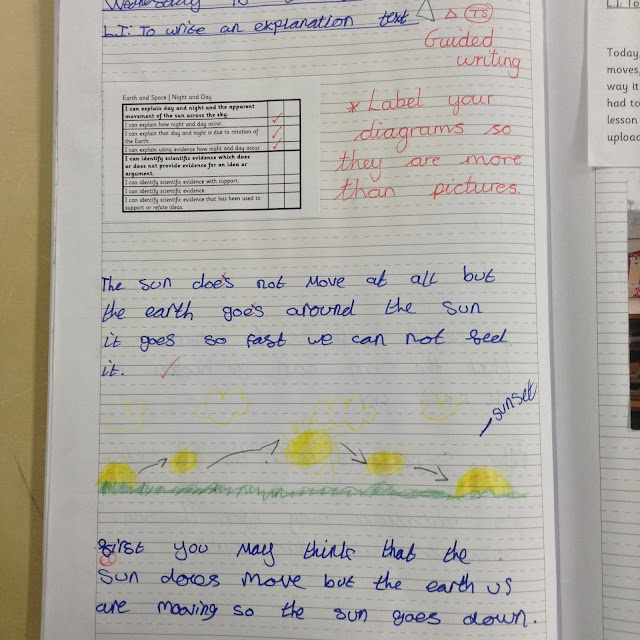 Wednesday
L.I: To write an explanation text
TS
Guided
writing
Earth and Space | Night and Day
I can explain day and night and the apparent
movement of the sun across the sky.
I can explain how night and day occur.
I can explain that day and night is due to rotation of
the Earth.
I can explain using evidence how night and day occur.
I can identify scientific evidence which does
or does not provide evidence for an idea or
argument.
I can identify scientific evidence with support.
I can identify scientific evidence.
I can identify scientific evidence that has been used to
support or refute ideas.
* Label your
diagrams so
they are more
than pictures.
The sun does not move at all but
the earth goes around the sun
it goes so fast we can not feel
it.
sunset
first you may think that the
sun does move but the earth us
are mooving so the sun goes down.
L.I: To
Today
moves,
way it
had to
lesson
upload